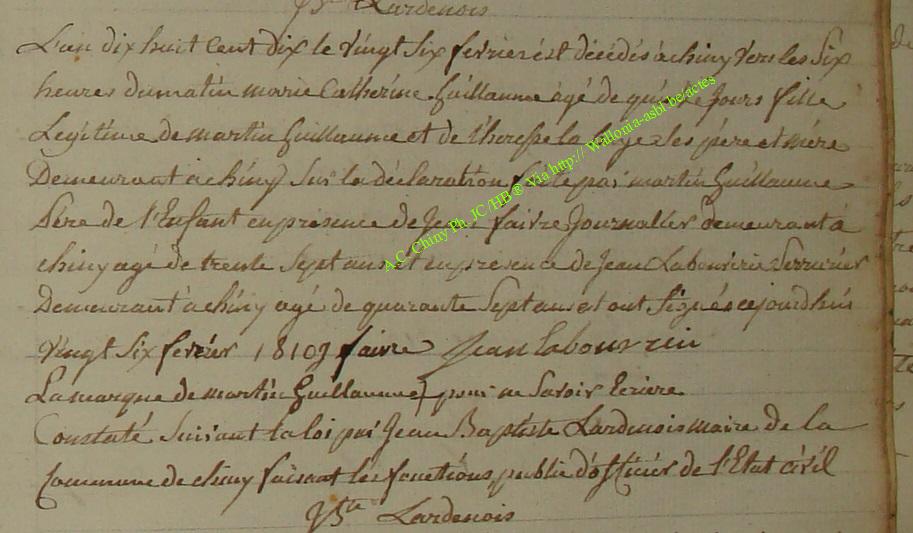 JB Lardenois
L'an dix huit Cent Dix le vingt Six fevrier est décédés à chiny vers les Six
heures dumatin marie Catherine Guillaume agé de quinze Jours fille
Legitime de martin Guillaume et de Theresse la haye Ses père et mère
Demeurant a chiny Sur la déclaration faite par martin Guillaume
Père de l'Enfant en présence de Jean faivre Journallier demeurant à
chiny agé de trente Sept ans et en presence de Jean Labouririe Serrurier
Demeurant a chiny agé de quarante Sept ans et ont Signés cejourdhui
vingt Six fevrier 1810 J faivre Jean Labourrieu
La marque de martin Guillaume) pour ne Savoir Ecrire
Constaté Suivant la loi par Jean Baptiste Lardenois maire de la
Commune de chiny faisant les fonctions, public d'officier de l'Etat civil
JBte Lardenois
A.C. Chiny Ph. JC/HB® Via http:// Wallonia-asbl be/actes